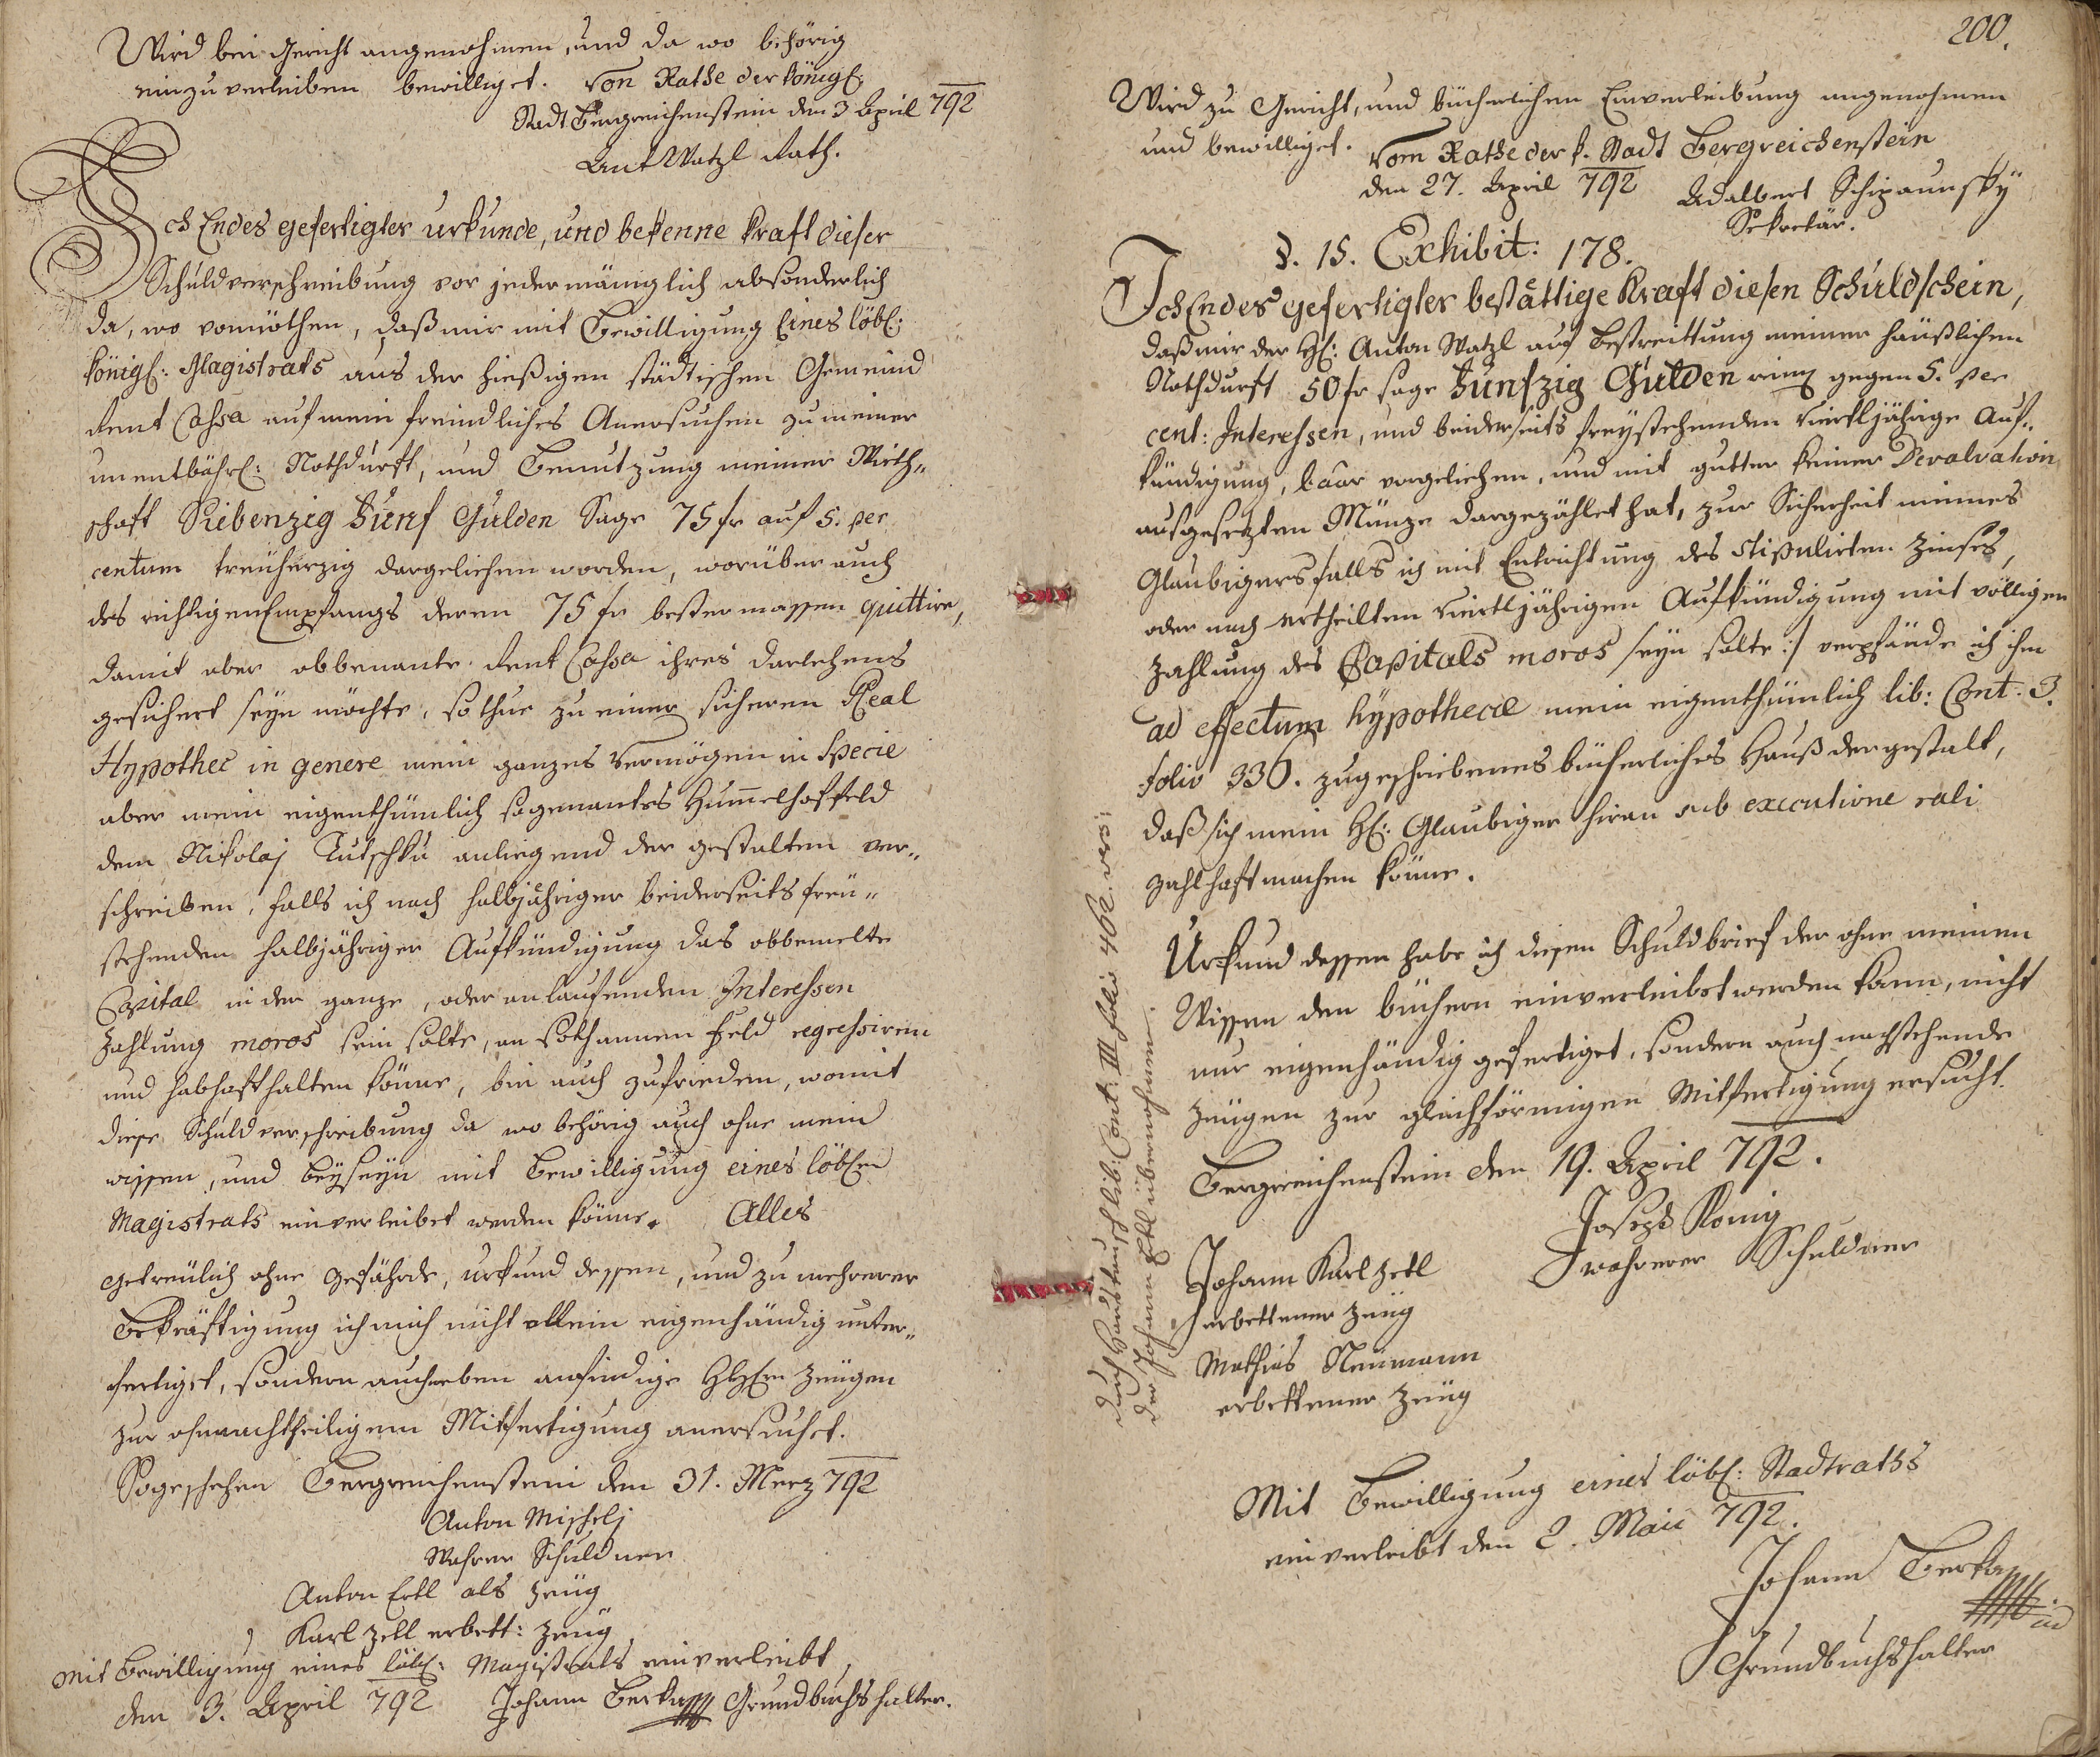 Wird bei Gericht angenohmen, und da wo behörig
einzuverleiben bewilliget. Von Rathe der königl:
Stadt Bergreichenstein den 3 April 792
Ant Watzl Rath.
Ich Endes gefertigter urkunde, und bekenne kraft dieser
Schuldverschreibung vor jedermäniglich absonderlich
da, wo vonnöthen, daß mir mit Bewilligung Eines löbl:
königl: Magistrats aus der hießigen städtischen Gemeind
Rent Cassa auf mein freundliches Anersuchen zu meiner
unentbährl: Nothdurft, und Benutzung meiner Wirth„
schaft Siebenzig Fünf Gulden Sage 75 fr auf 5. per
centum treuherzig dargeliehen worden, worüber auch
des richtigen Empfangs deren 75 fr bestermassen quittire,
damit aber obbenante Rent Cassa ihres Darlehens
gesichert seyn möchte, so thue zu einer sicheren Real
Hypothec in genere mein ganzes Vermögen in Specie
aber mein eigenthümlich sogenantes Hummelhoffeld
dem Nikolaj Tutschku anliegend der gestalten ver„
schreiben, falls ich nach halbjähriger beiderseits freü„
stehenden halbjähriger Aufkündigung das obbemelte
Capital in der ganze, oder anlaufenden Interessen
Zahlung moros sein solte, an sothannen Feld regressiren
und habhaft halten könne, bin auch zufrieden, womit
diese Schuldverschreibung da wo behörig auch ohne mein
wissen, und beyseyn mit Bewilligung eines löblen
Magistrats einverleibet werden könne. Alles
getreulich ohne Gefährde, urkund dessen, und zu mehrerer
Bekräftigung ich mich nicht allein eigenhändig unter„
fertiget, sondern auch neben anfindige HH: Zeugen
zur ohnnachtheiligem Mitfertigung anersuchet.
So geschehen Bergreichenstein den 31. Merz 792
Anton Mischelj
Wahrer Schuldner
Anton Ertl als Zeug
Karl Zettl erbett: Zeug
Mit Bewilligung eines löbl: Magistrats einverleibt
den 3. April 792 Johann Berka Grundbuchshalter.
200.
Wird zu Gericht, und bücherlichen Einverleibung angenohmen
und bewilliget. Vom Rathe der k. Stadt Bergreichenstein
den 27. April 792 Adalbert Schipaunsky
Sekretär.
§. 15. Exhibit: 178.
Ich Endes gefertigter bestättige Kraft diesen Schuldschein,
daß mir der H: Anton Watzl auf Bestreittung meiner häußlichen
Nothdurft 50 fr sage Fünfzig Gulden rein gegen 5. per
cent: Interessen, und beiderseits freystehenden viertljährige Auf„
kündigung, baar vorgeliehen, und mit gutter keiner Devalvation
ausgesetzten Münze dargezählet hat, zur Sicherheit meines
Glaubigers falls ich mit Entrichtung des stipulirten Zinses,
oder nach ertheilten viertljährigen Aufkündigung mit völligen
Zahlung des Capitals moros seyn solte :/ verpfände ich ihm
ad effectum hypothecæ mein eigenthümlich lib: Cont. 3.
folio 336. zugeschriebenes bücherliches Hauß dergestalt,
daß sich mein H: Glaubiger hieran sub executione rali
zahlhaft machen könne.
Urkund dessen habe ich diesen Schuldbrief der ohne meinen
Wissen den büchern einverleibet werden kann, nicht
nur eigenhändig gefertiget, sondern auch nachstehende
Zeugen zur gleichförmigen Mitfertigung ersucht.
Bergreichenstein den 19. April 792.
Joseph König
wahrerer Schuldner
Johann Karl Zettl
erbettener Zeug
Mathias Neumann
erbettener Zeug
Mit Bewilligung eines löbl: Stadtraths
einverleibt den 2. Maii 792.
Johann Berka
Grundbuchshalter
durch Haustausch lib: Cont: III folio 462. vers:
der Johann Ertl übernohmen.